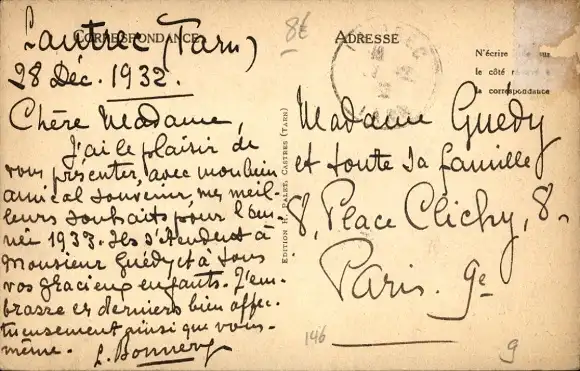 CORRESPONDANCE
Lautrec (Tarn)
28 Déc. 1932.
Chère Madame,
J'ai le plaisir de
vous présenter, avec mon bien
amical souvenir, mes meil-
leurs souhaits pour l'an-
née 1933. Ils s'étendent à
Monsieur Guédy et à tous
vos gracieux enfants. J'em-
brasse ces derniers bien affec-
tueusement ainsi que vous-
même.
EDITION H. PALET, CASTRES (TARN)
8€
ADRESSE
N'écrire que sur
le côté
la correspondance
Madame Guédy
et toute sa famille
8, Place Clichy, 8-
Paris. 9e
146
9